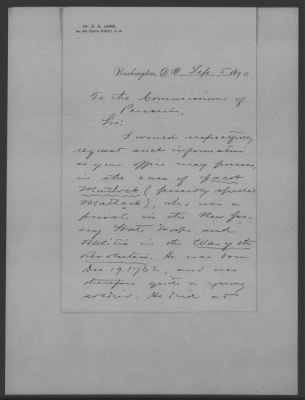 Dr. D. S. LAMB,
Washington, D.C. Sept. 5 1890
To the Commissioner of
Pensions,
Sir:
I would respectfully
request such information
as your office may possess
in the case of Jacob
Matlock (possibly spelled
Matlack), who was a
private in the New Jer-
sey State troops and
Militia in the War of the
Revolution. He was born
Dec. 19 1762, and was
therefore quite a young
soldier. He died at